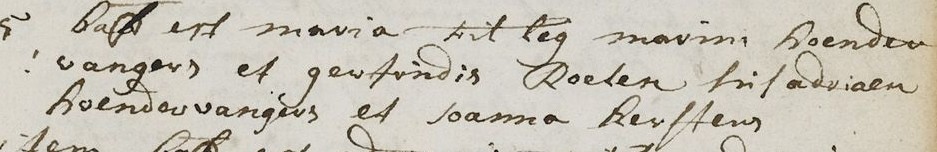 5 bapt est maria fil leg marini hoender
vangers et gertrudis Roelen sus adriaen
hoendervangers et Joanna kerstens
item bapt est